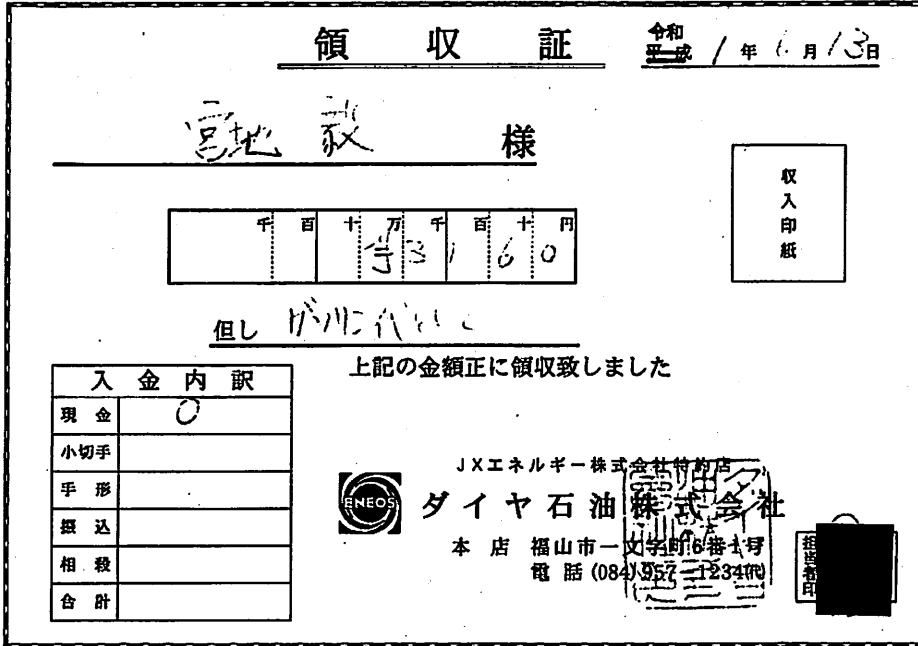 領収証
令和
平成 1年6月13日
宮地 毅 様
千百十万千百十円
¥3160
但し ガソリン代として
上記の金額正に領収致しました
収入印紙
入金内訳
現金 ○
小切手
手形
振込
相殺
合計
JXエネルギー株式会社特約店
ENEOS
ダイヤ石油株式会社
本店 福山市一文字町6番1号
電話(084)957-1234(代)
担当者印